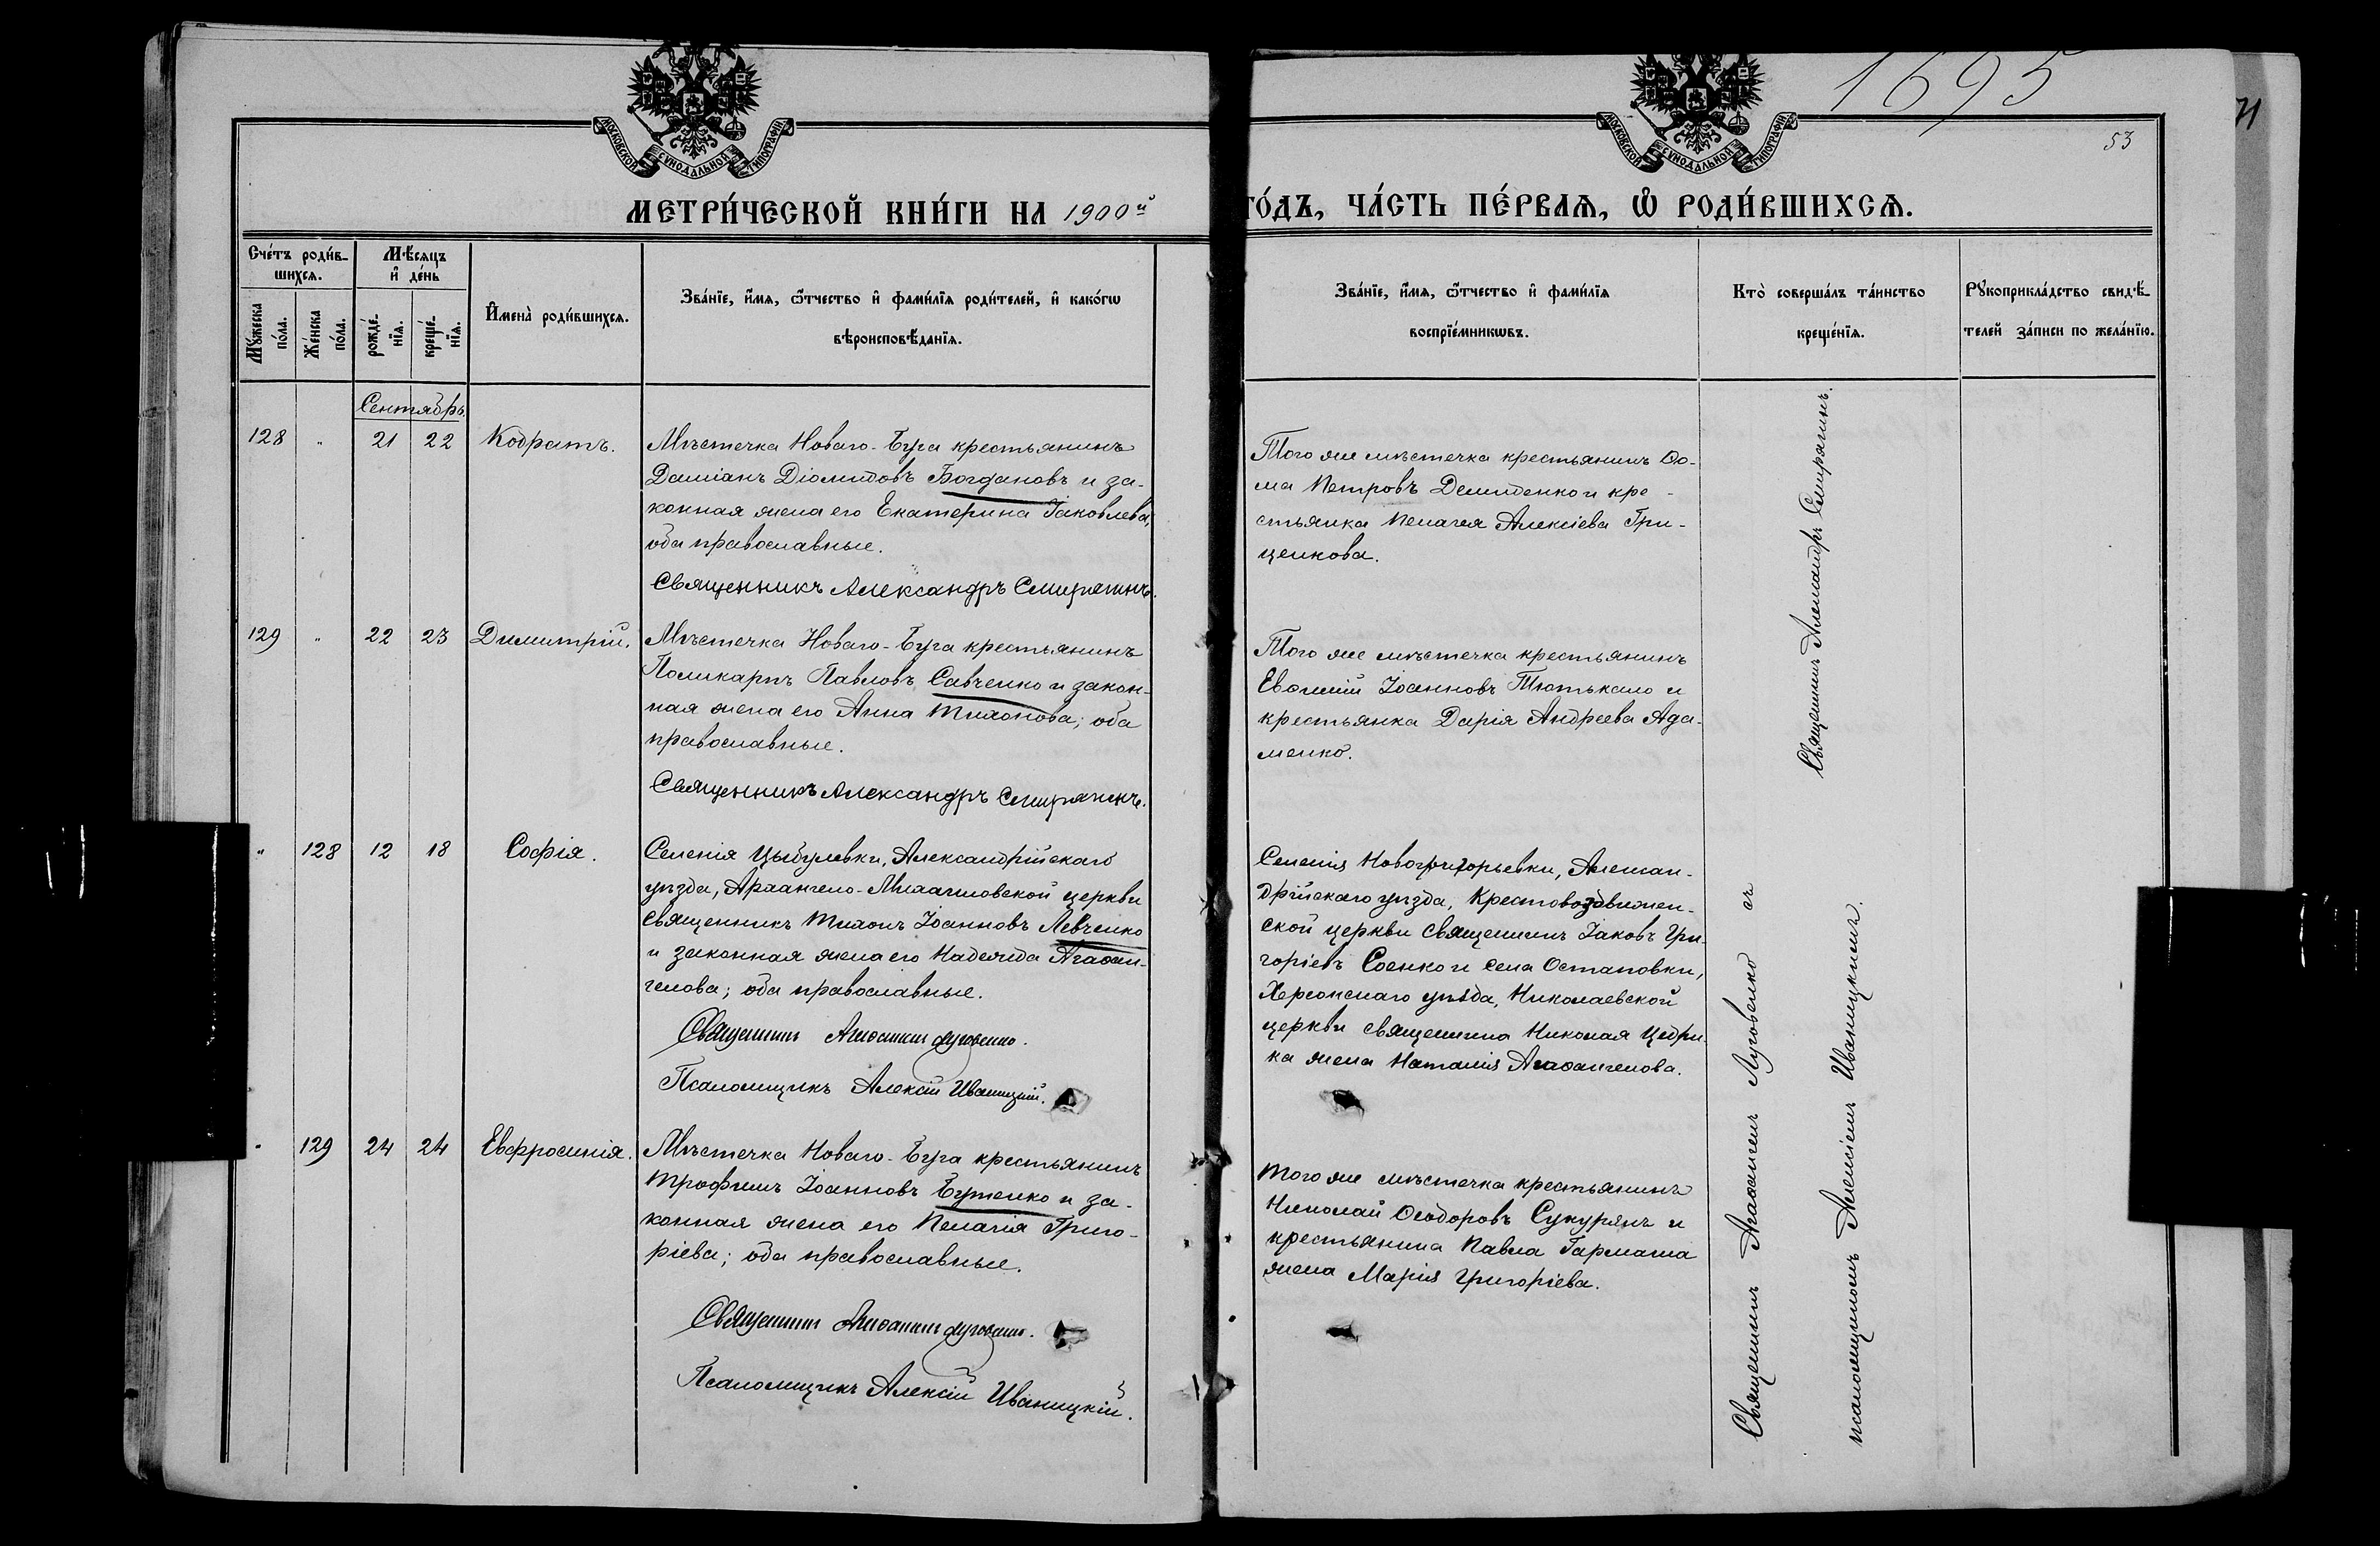 1695
71
53
МОСКОВСКОЙ СѴНОДАЛЬНОЙ ТИПОГРАФІИ
МОСКОВСКОЙ СѴНОДАЛЬНОЙ ТИПОГРАФІИ
МЕТРИ́ЧЕСКОЙ КНИ́ГИ НА 1900й
ГО́ДЪ, ЧА́СТЬ ПЕ́РВАѦ, Ѡ РОДИ́ВШИХСѦ.
Сче́тъ роди́в-
шихсѧ.
Мꙋ́жеска
по́ла.
Же́нска
по́ла.
Мѣ́сѧцъ
и҆ де́нь
рожде́-
нїѧ.
креще́-
нїѧ.
И҆мена̀ роди́вшихсѧ.
Зва́нїе, и҆́мѧ, ѻ҆́тчество и҆ фамилїѧ роди́телей, и҆ како́гѡ
вѣроисповѣ́данїѧ.
Зва́нїе, и҆́мѧ, ѻ҆́тчество и҆ фами́лїѧ
воспрїе́мникѡвъ.
Кто̀ соверша́лъ та́инство
креще́нїѧ.
Рꙋкоприкла́дство свидѣ́-
телей за́писи по жела́нїю.
Сентябрь.
128 „ 21 22 Кодратъ.
Мѣстечка Новаго-Буга крестьянинъ
Даміанъ Діомидовъ Богдановъ и за-
конная жена его Екатерина Іаковлева,
оба православные.
Священникъ Александръ Смирягинъ.
Того же мѣстечка крестьянинъ Ѳо-
ма Петровъ Демиденко и кре-
стьянка Пелагея Алексіева Гри-
ценкова.
Священникъ Александръ Смирягинъ.
129 „ 22 23 Димитрій.
Мѣстечка Новаго-Буга крестьянинъ
Поликарпъ Павловъ Савченко и закон-
ная жена его Анна Тихонова; оба
православные.
Священникъ Александръ Смирягинъ.
Того же мѣстечка крестьянинъ
Евѳимій Іоанновъ Тютькало и
крестьянка Дарія Андреева Ада-
менко.
„ 128 12 18 Софія.
Селенія Цыбулевки, Александрійскаго
уѣзда, Архангело-Михаиловской церкви
священникъ Тихонъ Іоанновъ Левченко
и законная жена его Надежда Агаѳан-
гелова; оба православные.
Священникъ Агаѳангелъ Луговенко.
Псаломщикъ Алексій Иваницкій.
Селенія Новогригорьевки, Алексан-
дрійскаго уѣзда, Крестовоздвижен-
ской церкви священникъ Іаковъ Гри-
горіевъ Соенко и села Остаповки,
Херсонскаго уѣзда, Николаевской
церкви священника Николая Цедри-
ка жена Наталія Агаѳангелова.
Священникъ Агаѳангелъ Луговенко съ
псаломщикомъ Алексіемъ Иваницкимъ.
„ 129 24 24 Евфросинія.
Мѣстечка Новаго-Буга крестьянинъ
Трофимъ Іоанновъ Бутенко и за-
конная жена его Пелагія Григо-
ріева; оба православные.
Священникъ Агаѳангелъ Луговенко.
Псаломщикъ Алексій Иваницкій.
Того же мѣстечка крестьянинъ
Николай Ѳеодоровъ Сукурянъ и
крестьянина Павла Гармаша
жена Марія Григоріева.